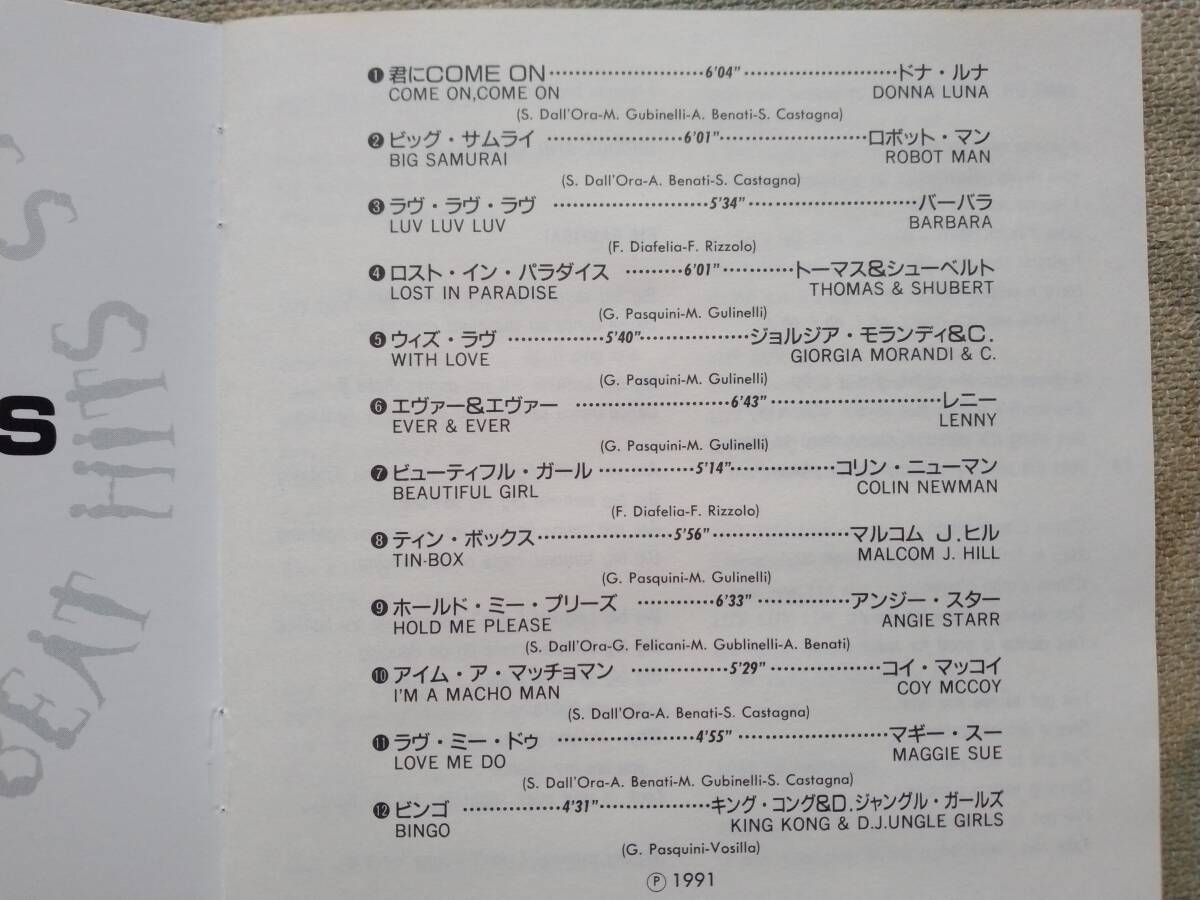 ❶ 君にCOME ON 6'04" ドナ・ルナ
COME ON,COME ON DONNA LUNA
(S. Dall'Ora-M. Gubinelli-A. Benati-S. Castagna)
❷ ビッグ・サムライ 6'01" ロボット・マン
BIG SAMURAI ROBOT MAN
(S. Dall'Ora-A. Benati-S. Castagna)
❸ ラヴ・ラヴ・ラヴ 5'34" バーバラ
LUV LUV LUV BARBARA
(F. Diafelia-F. Rizzolo)
❹ ロスト・イン・パラダイス 6'01" トーマス&シューベルト
LOST IN PARADISE THOMAS & SHUBERT
(G. Pasquini-M. Gulinelli)
❺ ウィズ・ラヴ 5'40" ジョルジア・モランディ&C.
WITH LOVE GIORGIA MORANDI & C.
(G. Pasquini-M. Gulinelli)
❻ エヴァー&エヴァー 6'43" レニー
EVER & EVER LENNY
(G. Pasquini-M. Gulinelli)
❼ ビューティフル・ガール 5'14" コリン・ニューマン
BEAUTIFUL GIRL COLIN NEWMAN
(F. Diafelia-F. Rizzolo)
❽ ティン・ボックス 5'56" マルコム J.ヒル
TIN-BOX MALCOM J. HILL
(G. Pasquini-M. Gulinelli)
❾ ホールド・ミー・プリーズ 6'33" アンジー・スター
HOLD ME PLEASE ANGIE STARR
(S. Dall'Ora-G. Felicani-M. Gublinelli-A. Benati)
❿ アイム・ア・マッチョマン 5'29" コイ・マッコイ
I'M A MACHO MAN COY MCCOY
(S. Dall'Ora-A. Benati-S. Castagna)
⓫ ラヴ・ミー・ドゥ 4'55" マギー・スー
LOVE ME DO MAGGIE SUE
(S. Dall'Ora-A. Benati-M. Gubinelli-S. Castagna)
⓬ ビンゴ 4'31" キング・コング&D.ジャングル・ガールズ
BINGO KING KONG & D.J.UNGLE GIRLS
(G. Pasquini-Vosilla)
Ⓟ 1991
S
BEAT HITS